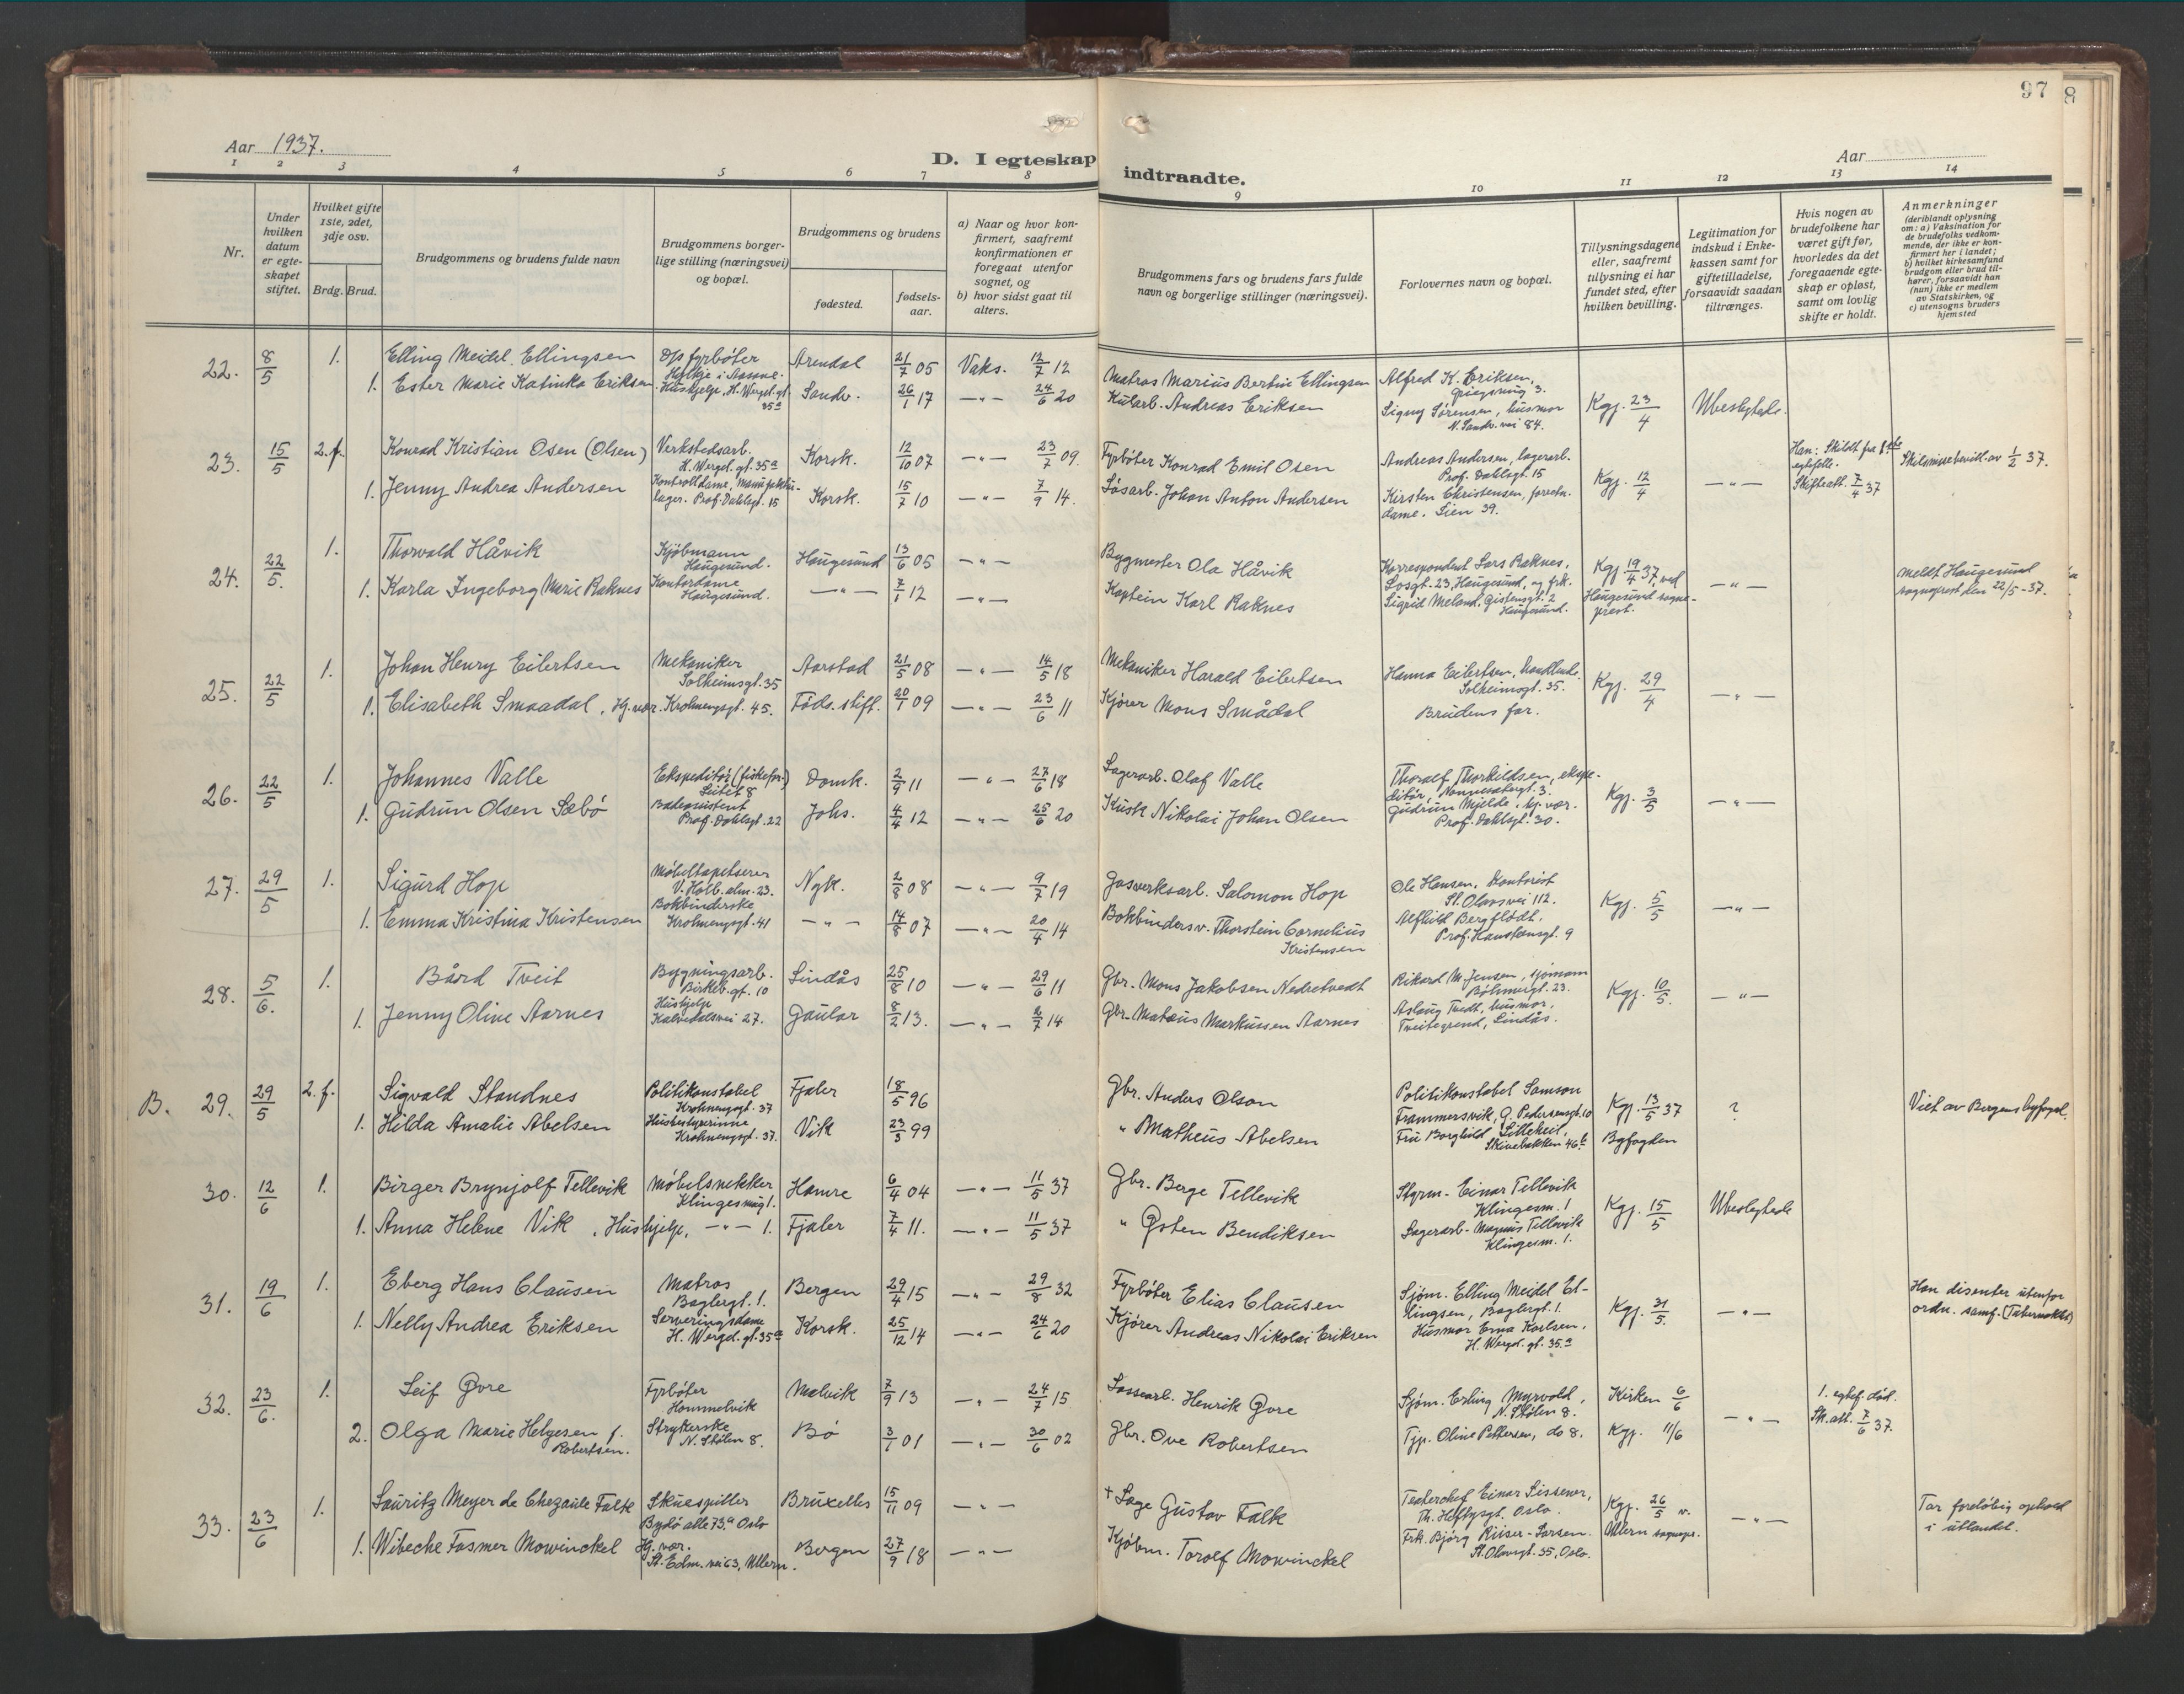 97
8
Aar 1937.
D. I egteskap indtraadte.
Aar
1 2 3 4 5 6 7 8 9 10 11 12 13 14
Nr.
Under hvilken datum er egteskapet stiftet.
Hvilket gifte 1ste, 2det, 3dje osv.
Brdg. Brud.
Brudgommens og brudens fulde navn
Brudgommens borgerlige stilling (næringsvei) og bopæl.
Brudgommens og brudens
fødested.
fødselsaar.
a) Naar og hvor konfirmert, saafremt konfirmationen er foregaat utenfor sognet, og
b) hvor sidst gaat til alters.
Brudgommens fars og brudens fars fulde navn og borgerlige stillinger (næringsvei).
Forlovernes navn og bopæl.
Tillysningsdagene eller, saafremt tillysning ei har fundet sted, efter hvilken bevilling.
Legitimation for indskud i Enkekassen samt for giftetilladelse, forsaavidt saadan tiltrænges.
Hvis nogen av brudefolkene har været gift før, hvorledes da det foregaaende egteskap er opløst, samt om lovlig skifte er holdt.
Anmerkninger
(deriblandt oplysning om: a) Vaksination for de brudefolks vedkommende, der ikke er konfirmert her i landet; b) hvilket kirkesamfund brudgom eller brud tilhører, forsaavidt han (hun) ikke er medlem av Statskirken, og c) utensogns bruders hjemsted
22. 8/5 1. Elling Meidel Ellingsen Dfs fyrbøter Hylkje i Aasane. Arendal 21/7 05 Vaks. 12/7 12 Matros Marius Bertin Ellingsen Alfred K. Eriksen,
1. Ester Marie Katinka Eriksen. Hushjelp, H. Wergel. gt. 35a Sandv. 26/1 17 —"— 24/6 20 Kularb. Andreas Eriksen Signy Sørensen, husmor N. Sandv. vei 84. Kgj. 23/4 Ubeslegtede.
23. 15/5 2.f. Konrad Kristian Osen (Olsen) Verkstedsarb. H. Wergel. gt. 35a Korsk. 12/10 07 —"— 23/7 09. Fyrbøter Konrad Emil Osen Andreas Andersen, lagerarb. Prof. Dahlsgt. 15 Kgj. 12/4 —"— Han: Skildt fra 1ste egtefelle. Skifteatt. 7/4 37 Skilsmissebevill. av 1/2 37.
1. Jenny Andrea Andersen Kontrolldame, lager. Prof. Dahlsgt. 15 Korsk. 15/7 10 —"— 7/9 14. Løsarb. Johan Anton Andersen Kirsten Christensen, dame. Lien 39.
24. 22/5. 1. Thorvald Håvik Kjøbmann Haugesund. Haugesund 13/6 05 —"— Bygmester Ola Håvik Korrespondent Lars Raknes, Losgt. 23, Haugesund, og frk. Kgj. 19/4 37, ved —"— meldt Haugesund sogneprest den 22/5-37.
1. Karla Ingeborg Marie Raknes Kontordame Haugesund. —"— 7/1 12 —"— Kaptein Karl Raknes Sigrid Meland, Gistensgt. 2 Haugesund. Haugesund sogneprest.
25. 22/5 1. Johan Henry Eilertsen Mekaniker Solheimsgt. 35 Aarstad 21/5 08 —"— 14/5 18 Mekaniker Harald Eilertsen Hanna Eilertsen, Solheimsgt. 35. Kgj. 29/4 —"—
1. Elisabeth Smaadal, Hj. vær. Krohnengsgt. 45. Føds. stift. 20/1 09 —"— 23/6 11 Kjører Mons Smådal Brudens far.
26. 22/5 1. Johannes Valle Ekspeditør (fiskefor.) Leitet 8 Domk. 2/9 11 —"— 27/6 18 Lagerarb. Olaf Valle Thoralf Thorkildsen, ekspeditør, Kgj. 3/5 —"—
1. Gudrun Olsen Sæbø Badeassistent Prof. Dahlsgt. 22 Johs. 4/4 12 —"— 25/6 20 Kusk Nikolai Johan Olsen Gudrun Mjelde, hj. vær. Prof. Dahlsgt. 30.
27. 29/5 1. Sigurd Hop Møbeltapetserer V. Holb. alm. 23. Nyk. 2/8 08 —"— 9/7 19 Gasverksarb. Salomon Hop Ole Hansen, Kontorist St. Olavsvei 112. Kgj. 5/5 —"—
1. Emma Kristina Kristensen Bokbinderske Krohnengsgt. 41 —"— 14/8 07 —"— 20/4 14 Bokbindersv. Thorstein Cornelius Kristensen Alfhild Bergflødt, Prof. Hansteensgt. 9
28. 5/6. 1. Bård Tveit Bygningsarb. Birkeb. gt. 10 Lindås 25/8 10 —"— 29/6 11 Gbr. Mons Jakobsen Nedretvedt Rikard M. Jensen, sjømann Bøhmergt. 23. Kgj. 10/5. —"—
1. Jenny Oline Aarnes Hushjelp Kalvedalsvei 27. Gaular 8/2 13. —"— 2/7 14 Gbr. Mataus Markussen Aarnes Aslaug Tvedt, husmor, Tveitegrend, Lindås.
B. 29. 29/5 2.f. Sigvald Standnes Politikonstabel Krohnengsgt. 37 Fjaler 18/5 96 Gbr. Anders Olson Politikonstabel Samson Frammersvik, G. Pedersensgt. 10 Kgj. 13/5 37 ? Viet av Bergens byfogd.
1. Hilda Amalie Abelsen Husbestyrerinne Krohnengsgt. 37. Vik 23/3 99 " Matheus Abelsen Fru Borghild Lillekeit, Skivebakken 46b Byfogden
30. 12/6 1. Birger Brynjolf Tellevik Møbelsnekker Klingesmug 1. Hamre 6/4 04 —"— 11/5 37 Gbr. Berge Tellevik Styrm. Einar Tellevik Klingesm. 1 Kgj. 15/5 Ubeslegtede
1. Anna Helene Vik, Hushjelp, —"— 1. Fjaler 7/4 11. —"— 11/5 37 " Østen Bendiksen Lagerarb. Magnus Tellevik Klingesm. 1.
31. 19/6 1. Eberg Hans Clausen Matros Baglergt. 1. Bergen 29/4 15 —"— 29/8 32 Fyrbøter Elias Clausen Sjøm. Elling Meidel Ellingsen, Baglergt. 1. Kgj. 31/5. —"— Han dissenter utenfor ordn. samf. (Tabernaklet)
1. Nelly Andrea Eriksen Serveringsdame H. Wergel. gt. 35a Korsk. 25/12 14 —"— 24/6 20 Kjører Andreas Nikolai Eriksen Husmor Erna Karlsen, H. Wergel. gt. 35.a
32. 23/6. 1. Leif Gvre Fyrbøter Hommelvik Malvik 7/9 13 —"— 24/7 15 Lossearb. Henrik Gvre Sjøm. Erling Myrvold, N. Stølen 8. Kirken 6/6 —"— 1. egtef. død. Sk. att. 7/6 37.
2. Olga Marie Helgesen f. Robertsen. Strykerske N. Stølen 8. Bø 3/1 01 —"— 30/6 02 Gbr. Ove Robertsen Tjp. Oline Pettersen, do 8. Kgj. 11/6
33. 23/6 1. Lauritz Meyer de Chezaule Falk Skuespiller Bygdø alle 73.a Oslo Bruxelles 15/11 09 —"— † Læge Gustav Falk Teaterchef Einar Sissener, Th. Heftysgt. Oslo. Kgj. 26/5 v. —"— Tar foreløbig ophold i utlandet.
1. Wibecke Fasmer Mowinckel Hj. vær. St. Edm. vei 63, Ullern. Bergen 27/9 18 —"— Kjøbm. Torolf Mowinckel Frk. Bjørg Riiser-Larsen. St. Olavsgt. 35, Oslo. Ullern sognepr.